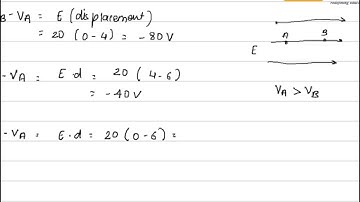 B - VA = E (displacement)
= 20 (0-4) = -80 V
A B
E
- VA = E.d = 20 (4-6)
= -40V
VA > VB
- VA = E.d = 20 (0-6) =